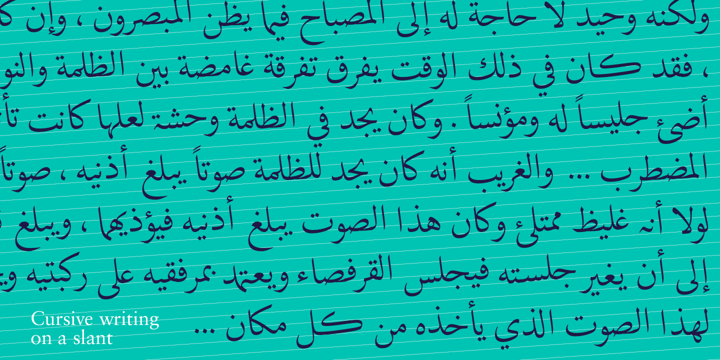 ولكنه وحيد لا حاجة له إلى المصباح فيما يظن المبصرون ، وإن
، فقد كان في ذلك الوقت يفرق تفرقة غامضة بين الظلمة والنو
أضئ جليساً له ومؤنساً . وكان يجد في الظلمة وحشة لعلها كانت تأ
المضطرب ... والغريب أنه كان يجد للظلمة صوتاً يبلغ أذنيه ، صوتاً
لولا أنه غليظ ممتلئ وكان هذا الصوت يبلغ أذنيه فيؤذيهما ، ويبلغ
إلى أن يغير جلسته فيجلس القرفصاء ويعتمد بمرفقيه على ركبتيه
لهذا الصوت الذي يأخذه من كل مكان ...
Cursive writing
on a slant